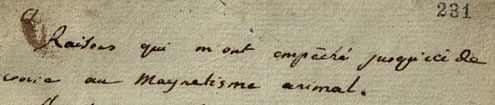 231
Raisons qui m'ont empêché jusqu'ici de
croire au Magnetisme animal.